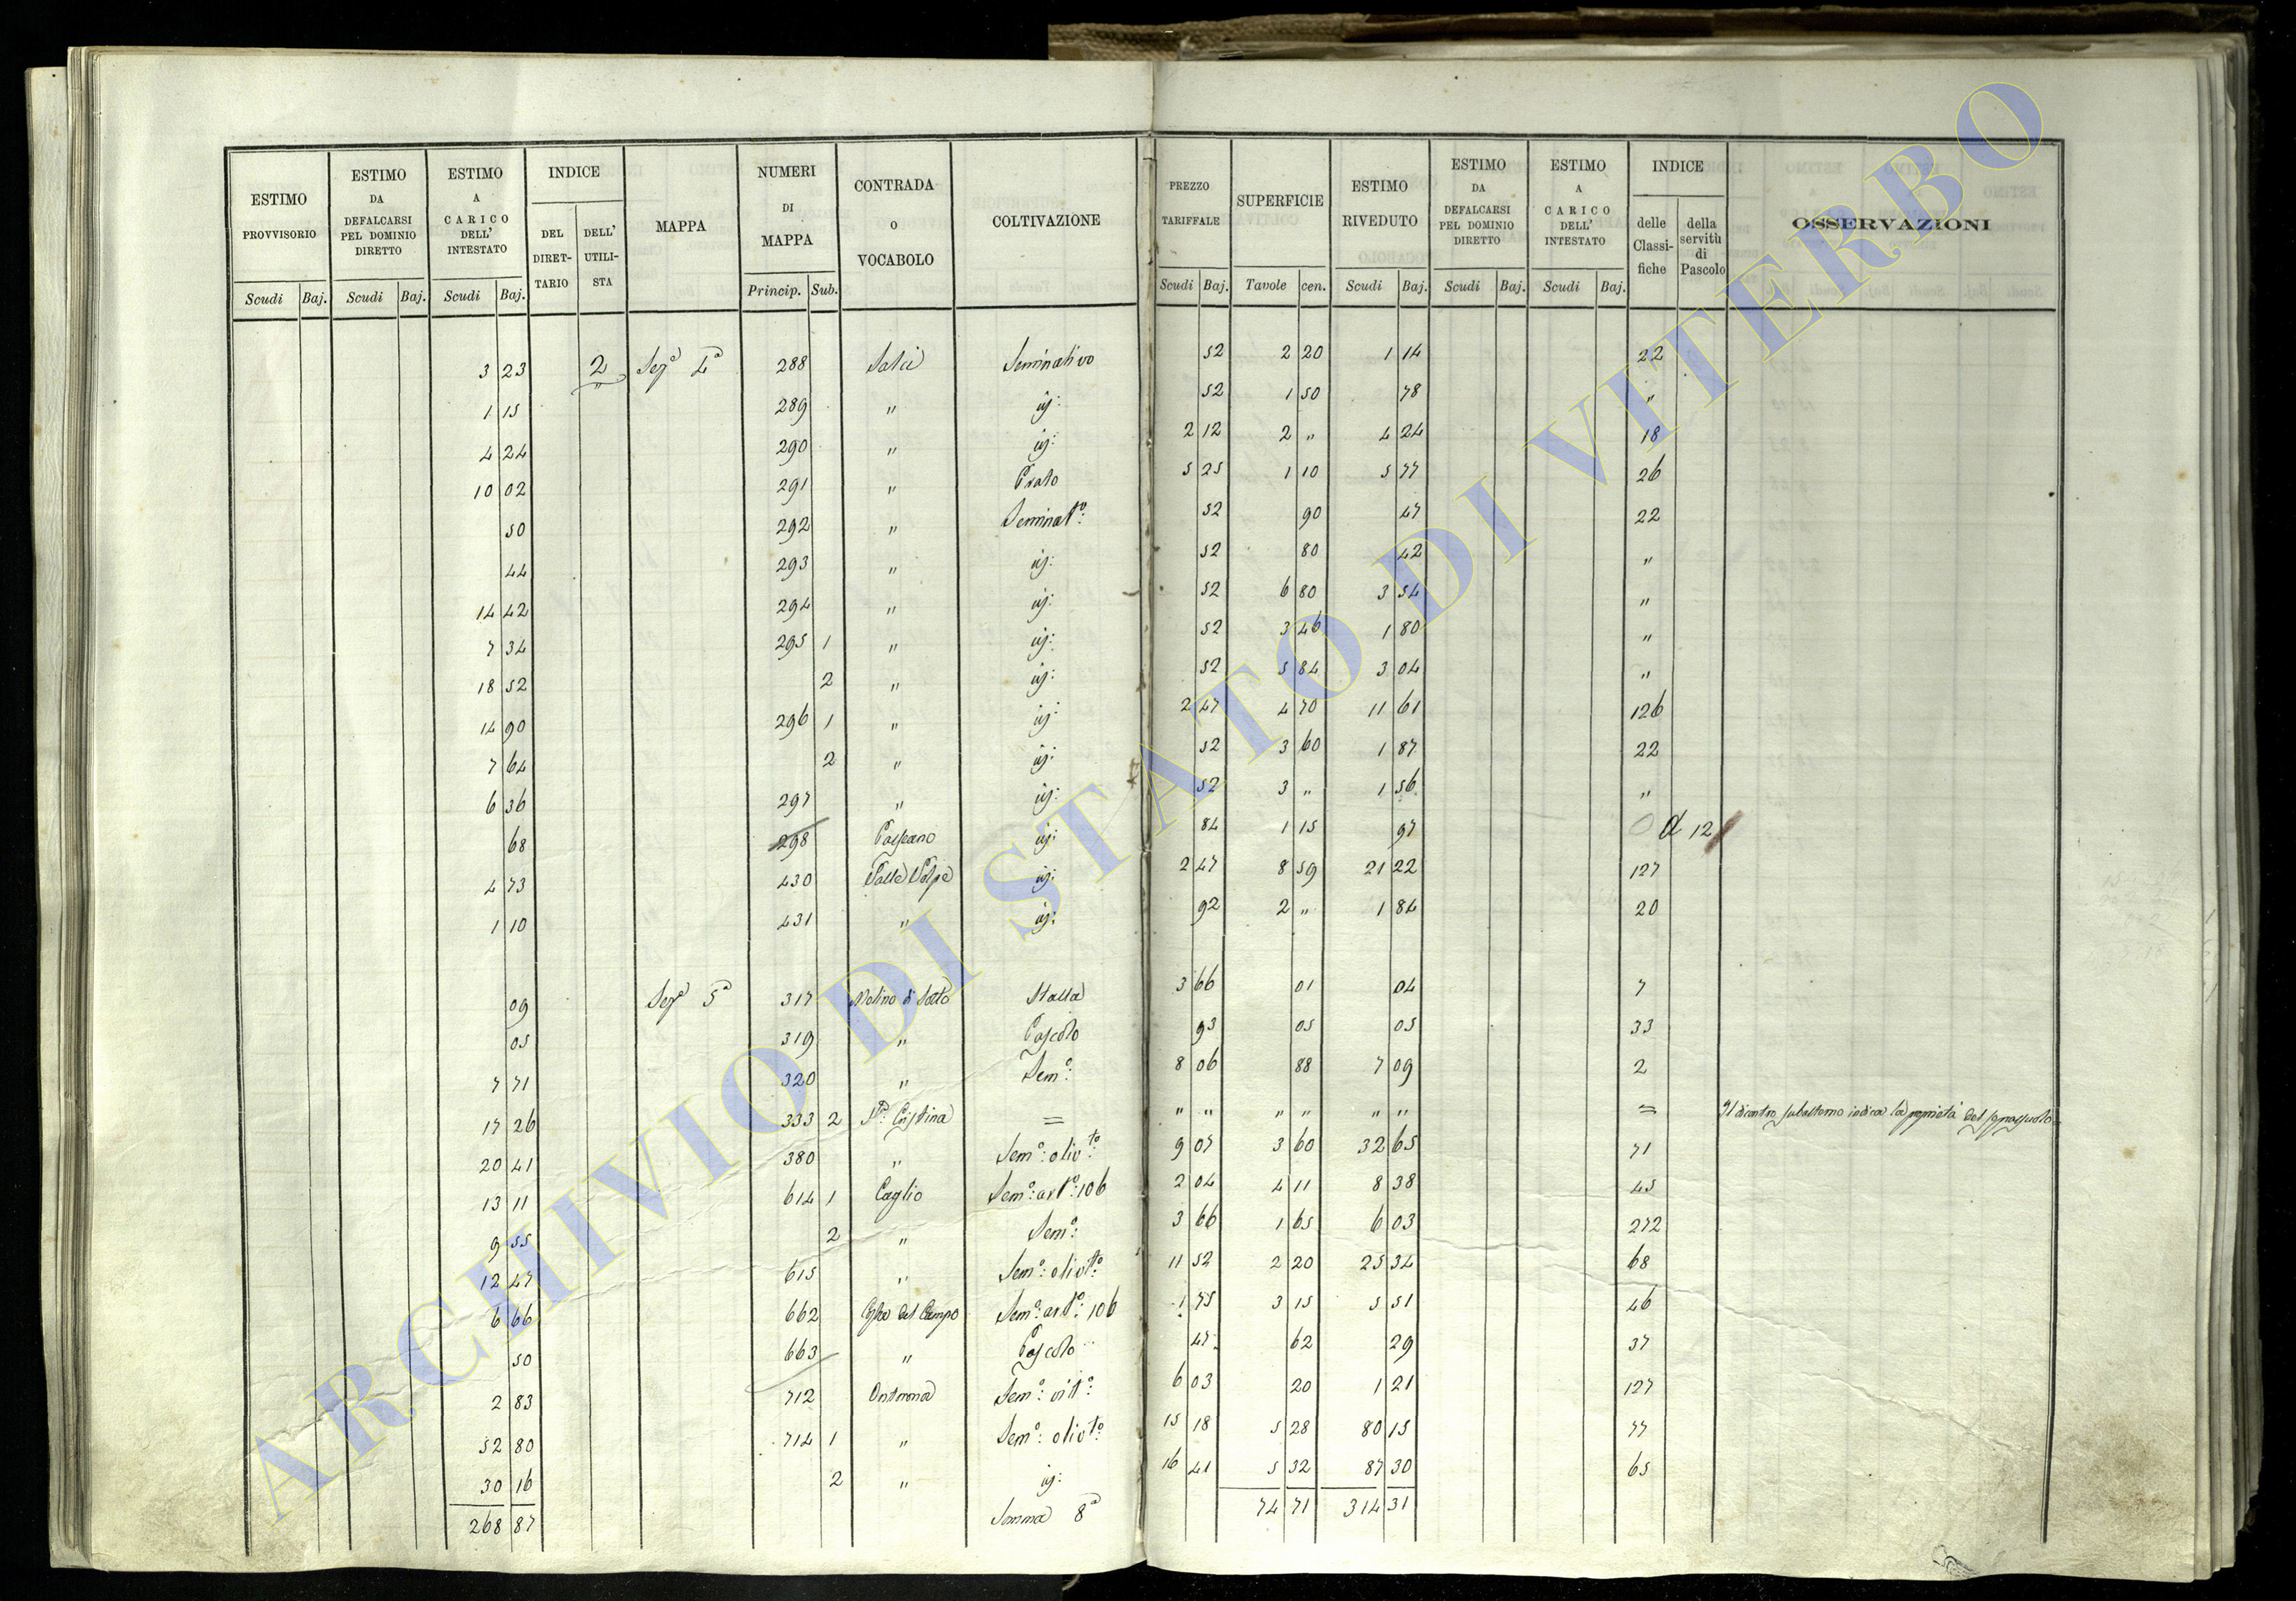 ESTIMO PROVVISORIO Scudi Baj.
ESTIMO DA DEFALCARSI PEL DOMINIO DIRETTO Scudi Baj.
ESTIMO A CARICO DELL' INTESTATO Scudi Baj.
INDICE DEL DIRET-TARIO DELL' UTILI-STA
MAPPA
NUMERI DI MAPPA Princip. Sub.
CONTRADA O VOCABOLO
COLTIVAZIONE
PREZZO TARIFFALE Scudi Baj.
SUPERFICIE Tavole cen.
ESTIMO RIVEDUTO Scudi Baj.
ESTIMO DA DEFALCARSI PEL DOMINIO DIRETTO Scudi Baj.
ESTIMO A CARICO DELL' INTESTATO Scudi Baj.
INDICE delle Classi-fiche della servitù di Pascolo
OSSERVAZIONI
3 23 2 Sezª 4ª 288 Salci Seminativo 52 2 20 1 14 22
1 15 289 " id: 52 1 50 78 "
4 24 290 " id: 2 12 2 " 4 24 18
10 02 291 " Prato 5 25 1 10 5 77 26
50 292 " Seminatº: 52 90 47 22
44 293 " id: 52 80 42 "
14 42 294 " id: 52 6 80 3 54 "
7 34 295 1 " id: 52 3 46 1 80 "
18 52 2 " id: 52 5 84 3 04 "
14 90 296 1 " id: 2 47 4 70 11 61 126
7 64 2 " id: 52 3 60 1 87 22
6 36 297 " id: 52 3 " 1 56 "
68 298 id: 84 1 15 97 d 12
4 73 430 Valle Volpe id: 2 47 8 59 21 22 127
1 10 431 " id: 92 2 " 1 84 20
09 Sezª 5ª 317 Molino di Sotto Stalla 3 66 01 04 7
05 319 " Pascolo 93 05 05 33
7 71 320 " Semº: 8 06 88 7 09 2
17 26 333 2 Sª: Cristina = " " " " " " = Il dicontro subalterno indica la proprietà del soprassuolo
20 41 380 " Semº: olivtº: 9 07 3 60 32 65 71
13 11 614 1 Caglio Semº: artº: 106 2 04 4 11 8 38 45
9 55 2 " Semº: 3 66 1 65 6 03 272
12 47 615 " Semº: olivtº: 11 52 2 20 25 34 68
6 66 662 Costa del Campo Semº: artº: 106 1 75 3 15 5 51 46
50 663 " Pascolo 47 62 29 37
2 83 712 Ontrona Semº: vitº: 6 03 20 1 21 127
52 80 714 1 " Semº: olivtº: 15 18 5 28 80 15 77
30 16 2 " id: 16 41 5 32 87 30 65
268 87 Somma 8ª 74 71 314 31
ARCHIVIO DI STATO DI VITERBO